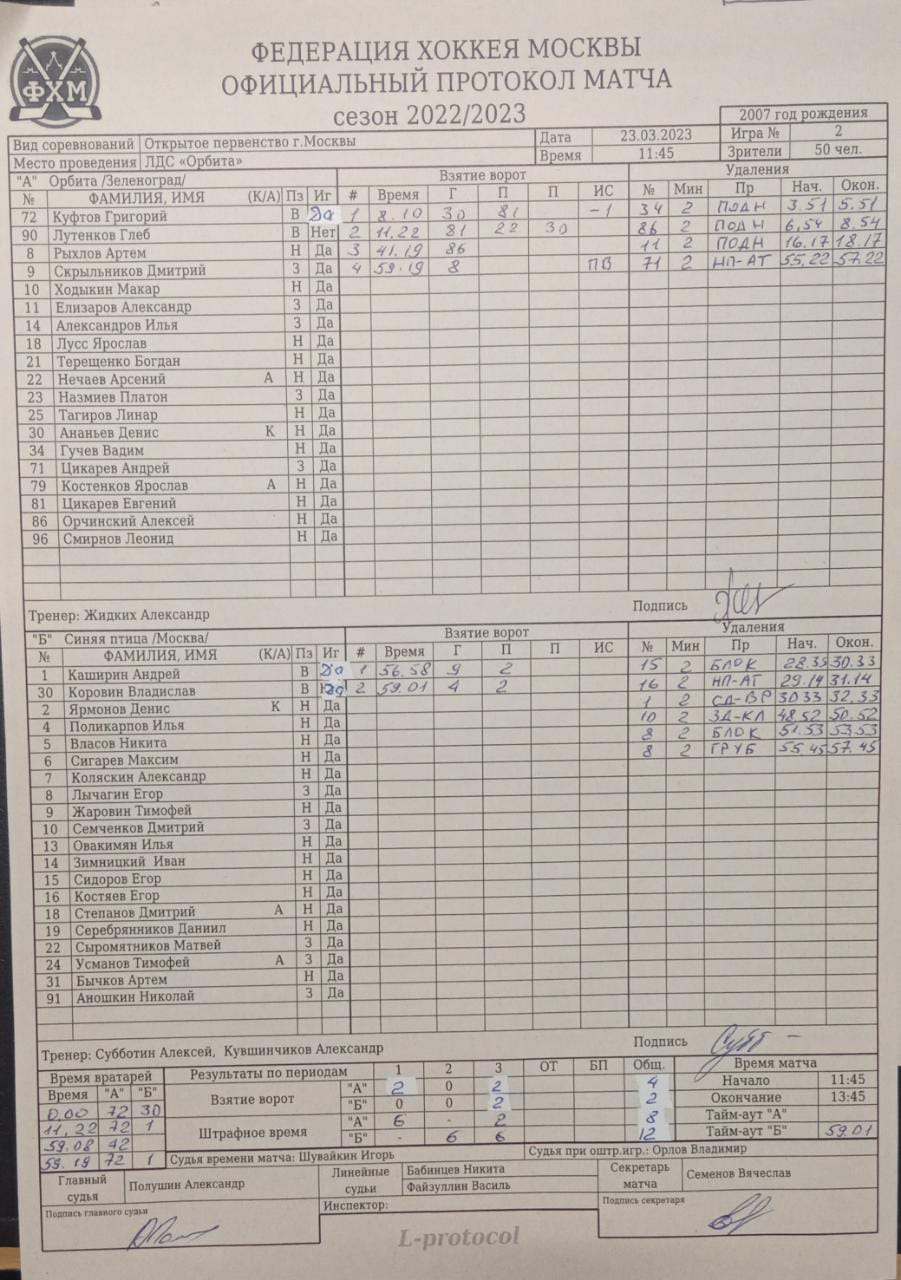 ФЕДЕРАЦИЯ ХОККЕЯ МОСКВЫ
ФХМ
ОФИЦИАЛЬНЫЙ ПРОТОКОЛ МАТЧА
сезон 2022/2023
2007 год рождения
Вид соревнований Открытое первенство г.Москвы Дата 23.03.2023 Игра № 2
Место проведения ЛДС «Орбита» Время 11:45 Зрители 50 чел.
"А" Орбита /Зеленоград/ Взятие ворот Удаления
№ ФАМИЛИЯ, ИМЯ (К/А) Пз Иг # Время Г П П ИС № Мин Пр Нач. Окон.
72 Куфтов Григорий В Да 1 8.10 30 81 -1 34 2 ПОДН 3.51 5.51
90 Лутенков Глеб В Нет 2 11.22 81 22 30 86 2 ПОДН 6.54 8.54
8 Рыхлов Артем Н Да 3 41.19 86 11 2 ПОДН 16.17 18.17
9 Скрыльников Дмитрий З Да 4 59.19 8 ПВ 71 2 НП-АТ 55.22 57.22
10 Ходыкин Макар Н Да
11 Елизаров Александр З Да
14 Александров Илья З Да
18 Лусс Ярослав Н Да
21 Терещенко Богдан Н Да
22 Нечаев Арсений А Н Да
23 Назмиев Платон З Да
25 Тагиров Линар Н Да
30 Ананьев Денис К Н Да
34 Гучев Вадим Н Да
71 Цикарев Андрей З Да
79 Костенков Ярослав А Н Да
81 Цикарев Евгений Н Да
86 Орчинский Алексей Н Да
96 Смирнов Леонид Н Да
Тренер: Жидких Александр Подпись
"Б" Синяя птица /Москва/ Взятие ворот Удаления
№ ФАМИЛИЯ, ИМЯ (К/А) Пз Иг # Время Г П П ИС № Мин Пр Нач. Окон.
1 Каширин Андрей В Да 1 56.58 9 2 15 2 БЛОК 28.33 30.33
30 Коровин Владислав В Да 2 59.01 4 2 16 2 НП-АТ 29.14 31.14
2 Ярмонов Денис К Н Да 1 2 СД-ВР 30.33 32.33
4 Поликарпов Илья Н Да 10 2 ЗД-КЛ 48.52 50.52
5 Власов Никита Н Да 8 2 БЛОК 51.53 53.53
6 Сигарев Максим Н Да 8 2 ГРУБ 55.45 57.45
7 Коляскин Александр Н Да
8 Лычагин Егор З Да
9 Жаровин Тимофей Н Да
10 Семченков Дмитрий З Да
13 Овакимян Илья Н Да
14 Зимницкий Иван Н Да
15 Сидоров Егор Н Да
16 Костяев Егор Н Да
18 Степанов Дмитрий А Н Да
19 Серебрянников Даниил Н Да
22 Сыромятников Матвей З Да
24 Усманов Тимофей А З Да
31 Бычков Артем Н Да
91 Аношкин Николай З Да
Тренер: Субботин Алексей, Кувшинчиков Александр Подпись
Время вратарей Результаты по периодам 1 2 3 ОТ БП Общ. Время матча
Время "А" "Б" Взятие ворот "А" 2 0 2 4 Начало 11:45
0.00 72 30 "Б" 0 0 2 2 Окончание 13:45
11,22 72 1 Штрафное время "А" 6 - 2 8 Тайм-аут "А"
59.08 "Б" - 6 6 12 Тайм-аут "Б" 59.01
59.19 72 1 Судья времени матча: Шувайкин Игорь Судья при оштр.игр.: Орлов Владимир
Главный судья Полушин Александр Линейные судьи Бабинцев Никита Секретарь матча Семенов Вячеслав
Файзуллин Василь
Подпись главного судьи Инспектор: Подпись секретаря
L-protocol